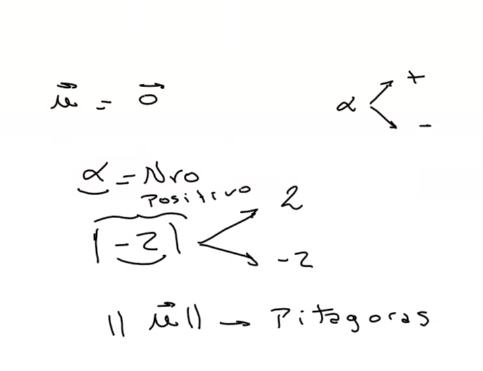 u⃗ = 0⃗
α + -
α = Nro
Positivo
|-2| 2 -2
||u⃗|| → Pitagoras